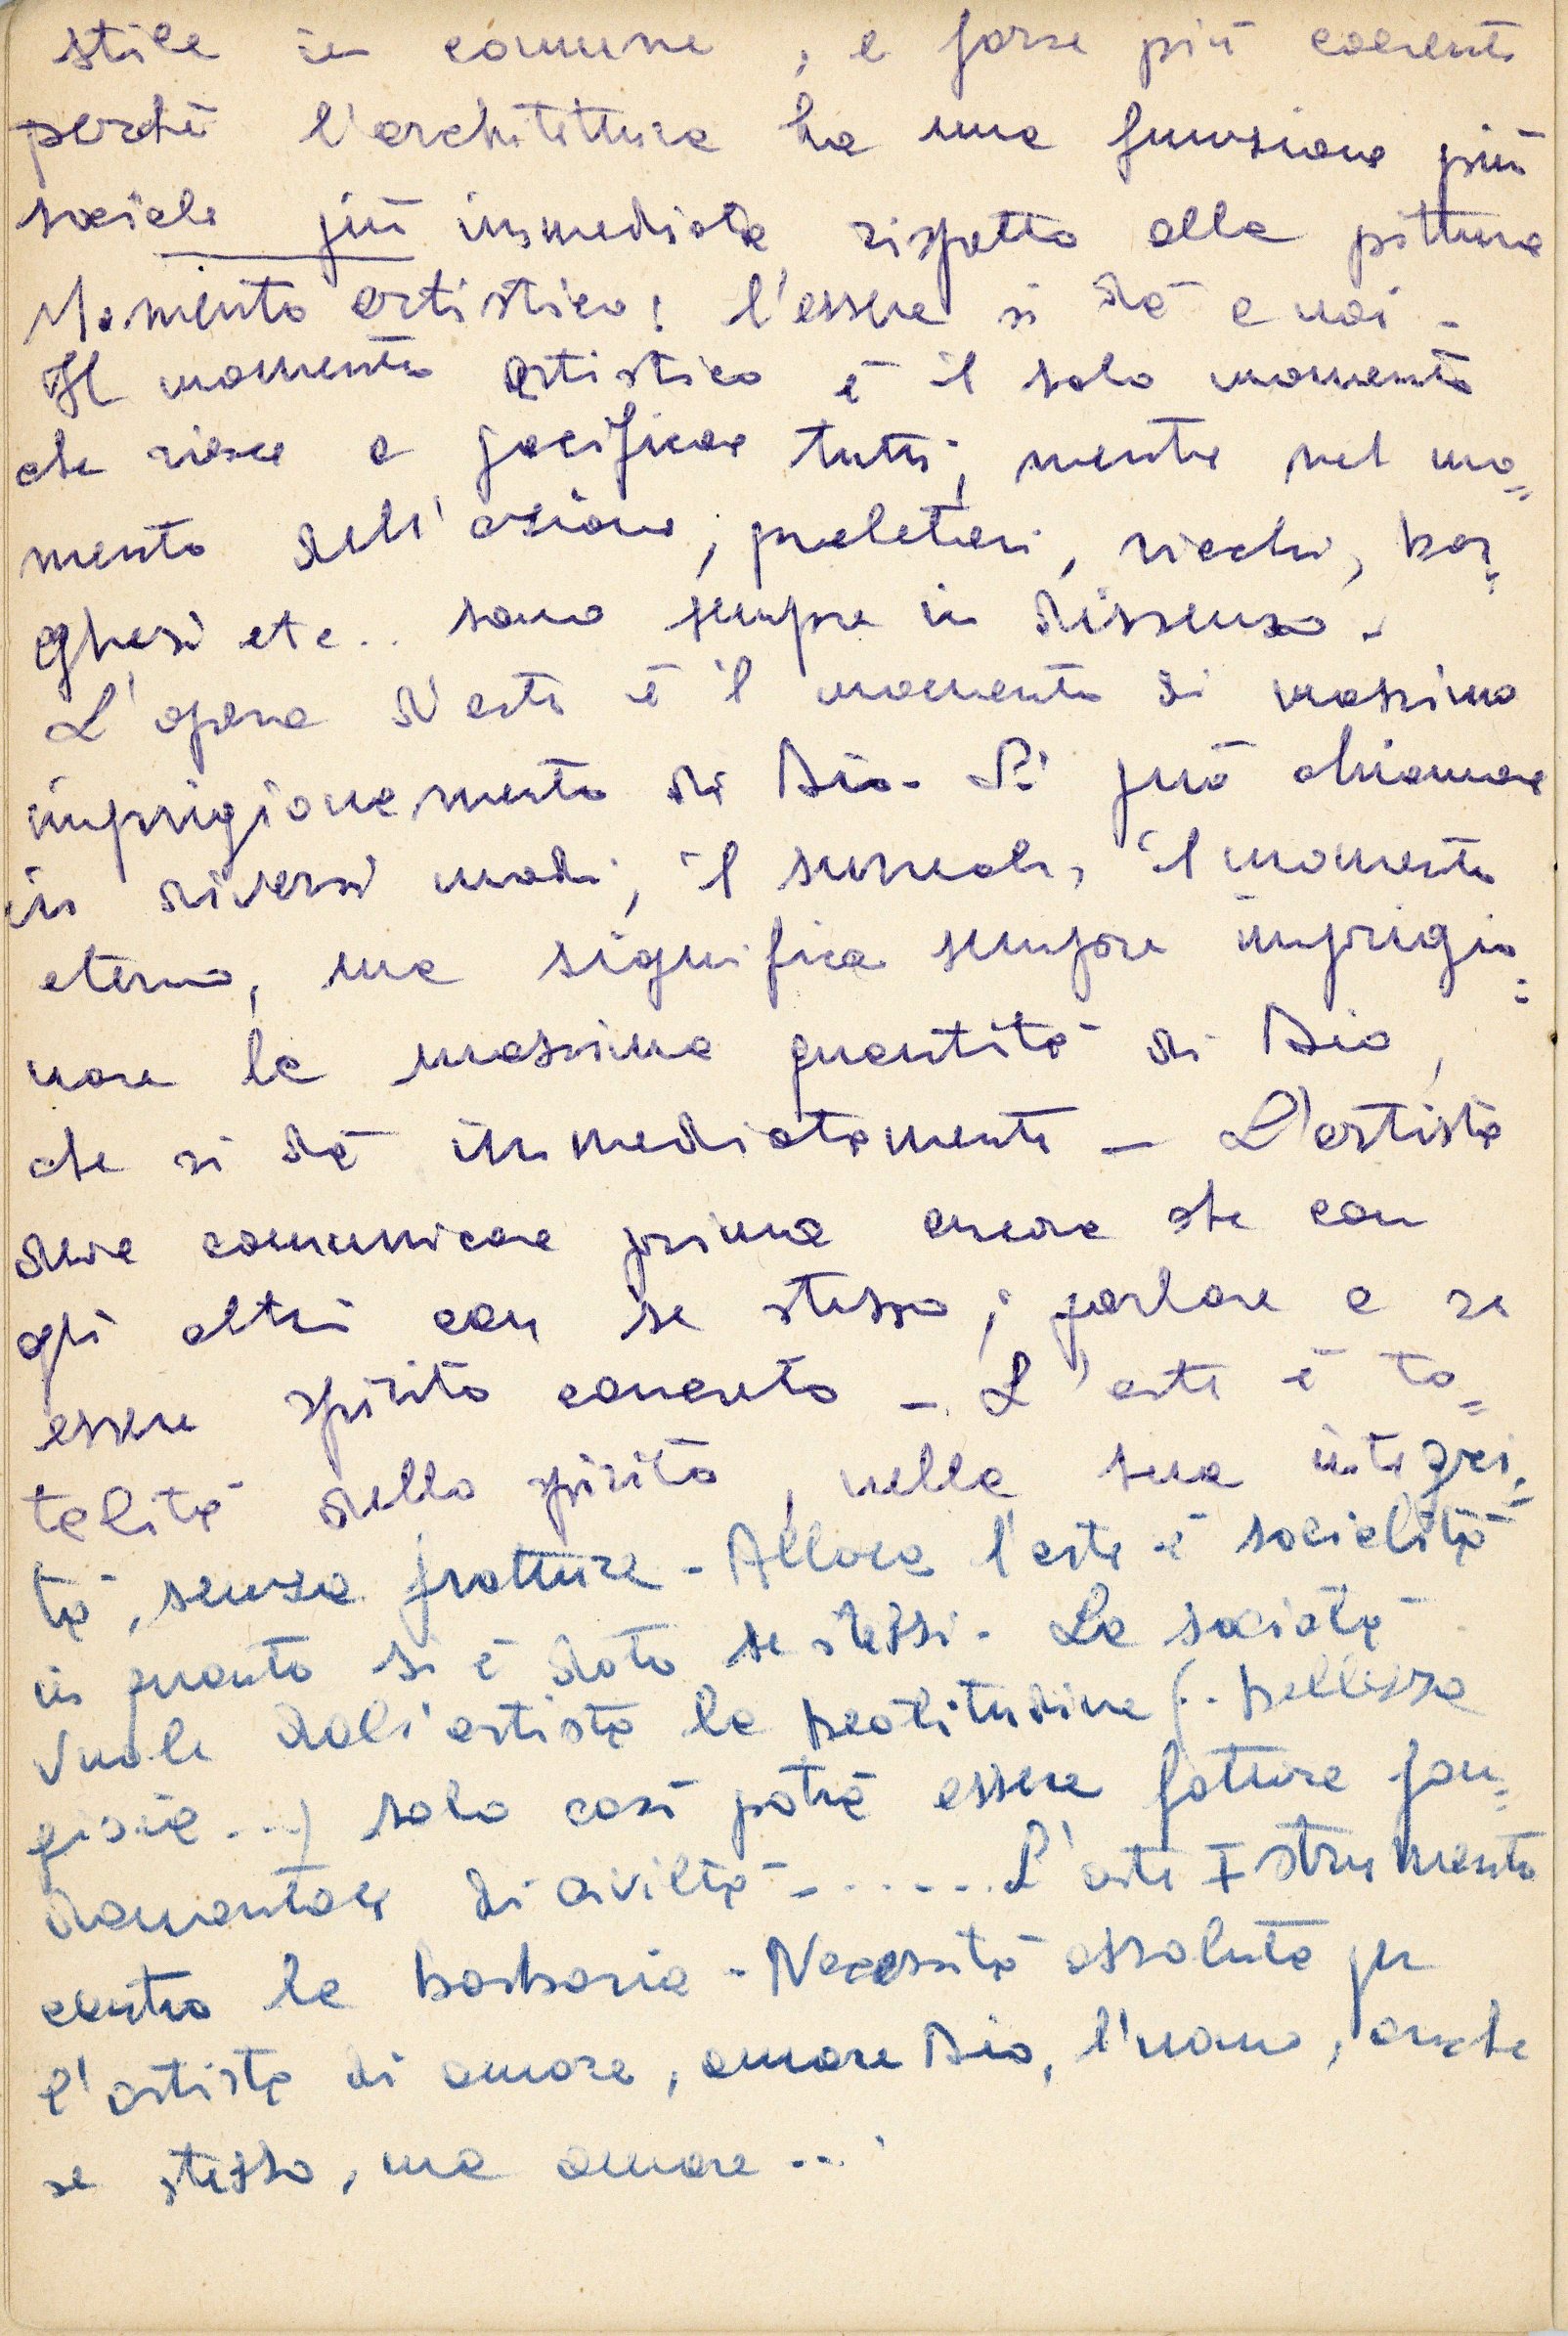 stile in comune, e forse più coerente
perché l'architettura ha una funzione più
sociale più immediata rispetto alla pittura
Momento artistico: l'essere si dà a noi -
Il momento artistico è il solo momento
che riesce a pacificare tutti, mentre nel mo=
mento dell'azione, proletari, ricchi, bor=
ghesi etc.. sono sempre in dissenso -
L'opera d'arte è il momento di massimo
imprigionamento di Dio - Si può chiamare
in diversi modi, il surreale, il momento
eterno, ma significa sempre imprigio=
nare la massima quantità di Dio,
che si dà immediatamente - L'artista
deve comunicare prima ancora che con
gli altri con se stesso; parlare a se
essere spirito concreto - L'arte è to=
talità dello spirito, nella sua integri=
tà, senza fratture - Allora l'arte è socialità
in quanto si è dato se stessi - La società
vuole dall'artista la beatitudine (.. bellezza
gioia ...) solo così potrà essere fattore fon=
damentale di civiltà - ...... L'arte strumento
contro la barbarie - Necessità assoluta per
l'artista di amare, amare Dio, l'uomo, anche
se stesso, ma amare ...